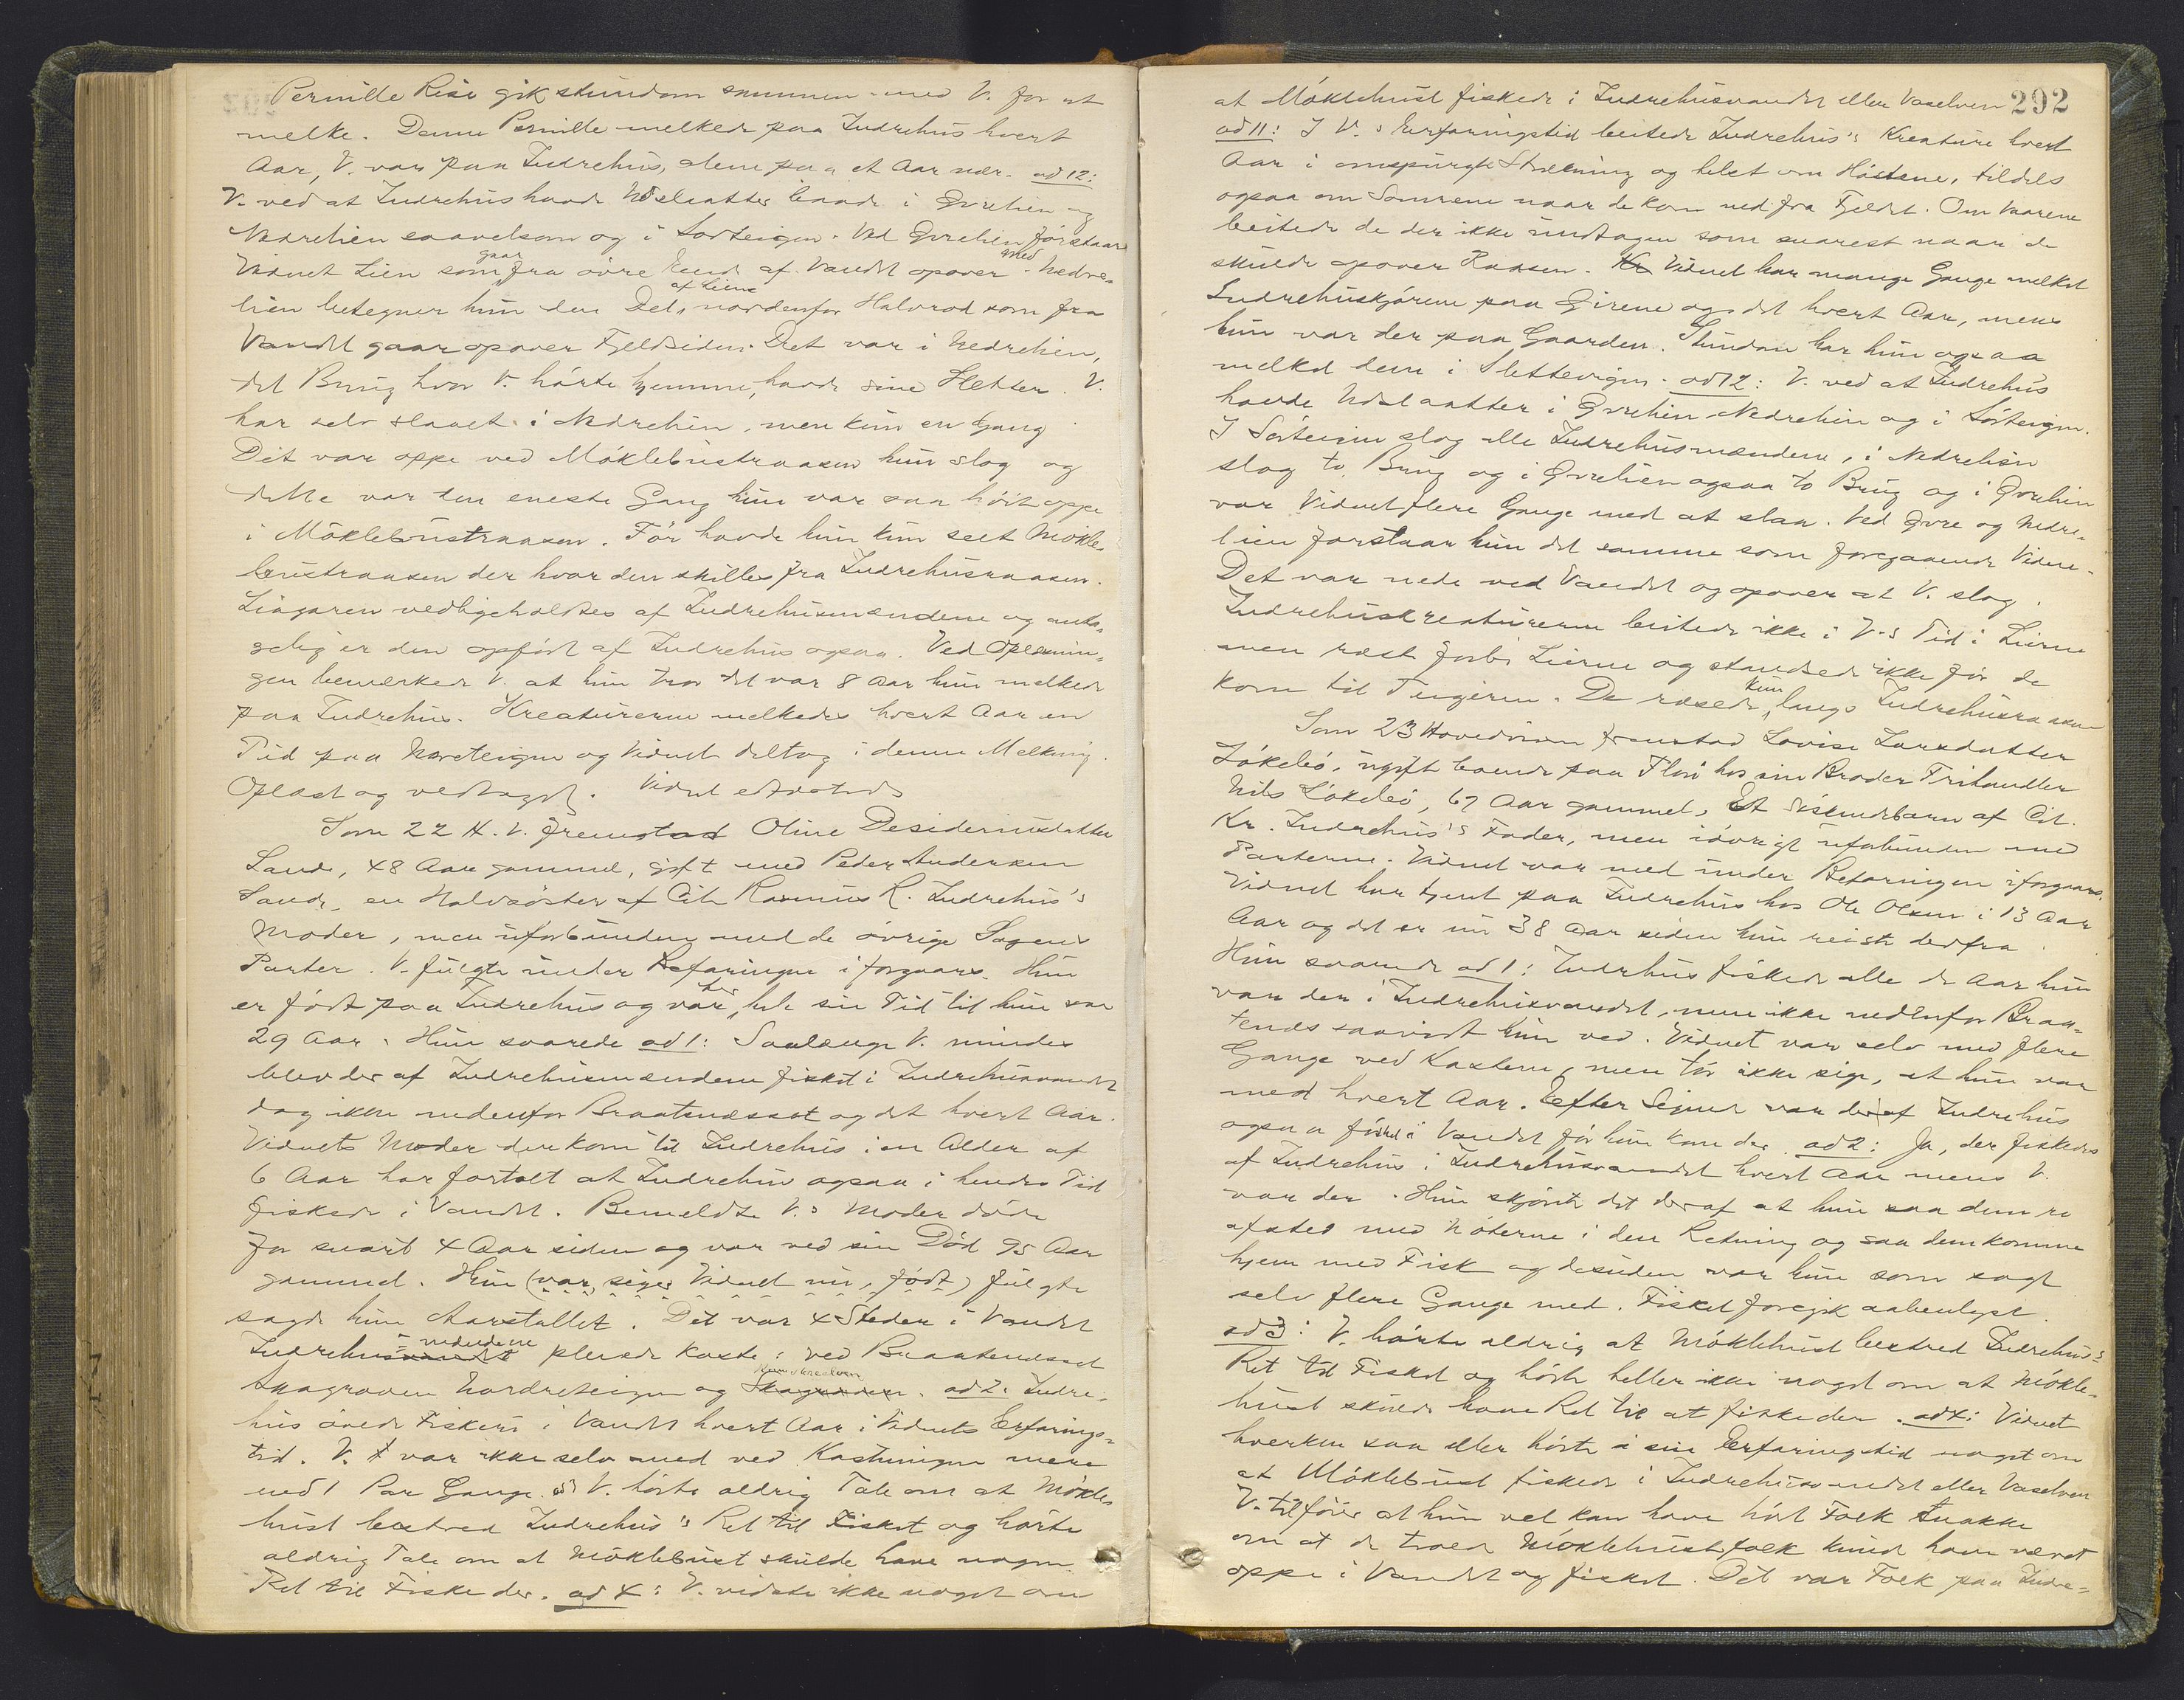 Pernille Rise gik stundom sammen med V. for at
melke. Denne Pernille melkede paa Indrehus hvert
Aar, V. var paa Indrehus, alene paa et Aar nær. ad 12:
V. ved at Indrehus havde Udslaatter baade i Øvrelien og
Nedrelien saavelsom og i Sørteigen. Ved Øvrelien forstaar
Vidnet Lien som gaar fra øvre Ende af Vandet opover med. Nedre-
lien betegner hun den Del af Liene nordenfor Halvrod som fra
Vandet gaar opover Fjeldsiden. Det var i Nedrelien,
det Brug hvor V. hørte hjemme, havde sine Sletter. V.
har selv slaaet i Nedrelien, men kun en Gang.
Det var oppe ved Møklebustraasen hun slog og
dette var den eneste Gang hun var saa høit oppe
i Møklebustraasen. Før havde hun kun seet Møkle-
bustraasen der hvor den skilles fra Indrehusraasen.
Liagaren vedligeholdtes af Indrehusmændene og anta-
gelig er den opført af Indrehus ogsaa. Ved Oplæsnin-
gen bemerker V. at hun tror det var 8 Aar hun melkede
paa Indrehus. Kreaturerne melkedes hvert Aar en
Tid paa Nordreteigen og Vidnet deltog i denne Melkning.
Oplæst og vedtaget. Vidnet aftraadte
Som 22 H. V. fremstod Oline Desideriusdatter
Sande, 48 Aar gammel, gift med Peder Andersen
Sande, en Halvsøster af Cit. Rasmus R. Indrehus's
Moder, men uforbunden med de øvrige Sagens
Parter. V. fulgte under Befaringen iforgaars. Hun
er født paa Indrehus og var der hele sin Tid til hun var
29 Aar. Hun svarede ad 1: Saalænge V. mindes
blev der af Indrehusmændene fisket i Indrehusvandet
dog ikke nedenfor Braatenæsset og det hvert Aar.
Vidnets Moder der kom til Indrehus i en Alder af
6 Aar har fortalt at Indrehus ogsaa i hendes Tid
fiskede i Vandet. Bemeldte V.s Moder døde
for snart 4 Aar siden og var ved sin Død 95 Aar
gammel. Hun (var, siger Vidnet nu, født) fulgte
sagde hun Aarstallet. Det var 4 Steder i Vandet
Indrehusmændene pleiede kaste: ved Braatenæsset
Skagroven Nordreteigen og Skagroven. ad 2: Indre-
hus øvede Fiskeri i Vandet hvert Aar i Vidnets Erfarings-
tid. V. var ikke selv med ved Kastningen mere
end 1 Par Gange. ad 3 V. hørte aldrig Tale om at Møkle-
bust bestred Indrehus's Ret til Fisket og hørte
aldrig Tale om at Møklebust skulde have nogen
Ret til Fiske der. ad 4: V. vidste ikke noget om
292
at Møklebust fiskede i Indrehusvandet eller Vaselven
ad 11: I V.s Erfaringstid beitede Indrehus's Kreature hvert
Aar i omspurgte Strækning og helst om Høstene, tildels
ogsaa om Somrene naar de kom ned fra Fjeldet. Om Vaarene
beitede de der ikke undtagen som snarest naar de
skulde opover Raasen. Vidnet har mange Gange melket
Indrehuskjørene paa Girene og det hvert Aar, mens
hun var der paa Gaarden. Stundom har hun ogsaa
melket dem i Sletteeigen. ad 12: V. ved at Indrehus
havde Udslaatter i Øvrelien Nedrelien og i Sørteigen.
I Sørteigen slog alle Indrehusmændene, i Nedrelien
slog to Brug og i Øvrelien ogsaa to Brug og i Øvrelien
var Vidnet flere Gange med at slaa. Ved Øvre og Nedre-
lien forstaar hun det samme som foregaaende Vidne.
Det var nede ved Vandet og opover at V. slog.
Indrehuskreaturerne beitede ikke i V.s Tid i Lierne
men ræst forbi Lierne og standsede ikke før de
kom til Teigerne. De ræsede kun langs Indrehusraasen
Som 23 Hovedvidne fremstod Lovise Larsdatter
Løkebø, ugift boende paa Florø hos sin Broder Frihandler
Nils Løkebø, 67 Aar gammel, Et Søskendebarn af Cit.
Kr. Indrehus's Fader, men iøvrigt uforbunden med
Parterne. Vidnet var med under Befaringen iforgaars.
Vidnet har tjent paa Indrehus hos Ole Olsen i 13 Aar
Aar og det er nu 38 Aar siden hun reiste derfra.
Hun svarede ad 1: Indrehus fiskede alle de Aar hun
var der i Indrehusvandet, men ikke nedenfor Braa-
tenæs saavidt hun ved. Vidnet var selv med flere
Gange ved Kasterne, men tør ikke sige, at hun var
med hvert Aar. Efter Sigende var der af Indrehus
ogsaa fisket i Vandet før hun kom der. ad 2: Ja, der fiskedes
af Indrehus i Indrehusvandet hvert Aar mens V.
var der. Hun skjønte det deraf at hun saa dem ro
afsted med Nøterne i den Retning og saa dem komme
hjem med Fisk og desuden var hun som sagt
selv flere Gange med. Fisket foregik aabenlyst.
ad 3: V. hørte aldrig at Møklebust bestred Indrehus's
Ret til Fisket og hørte heller ikke noget om at Møkle-
bust skulde have Ret til at fiske der. ad 4: Vidnet
hverken saa eller hørte i sin Erfaringstid noget om
at Møklebust fiskede i Indrehusvandet eller Vaselven
V. tilføier at hun vel kan have hørt Folk snakke
om at de troede Møklebustfolk kunde have været
oppe i Vandet og fisket. Det var Folk paa Indre-